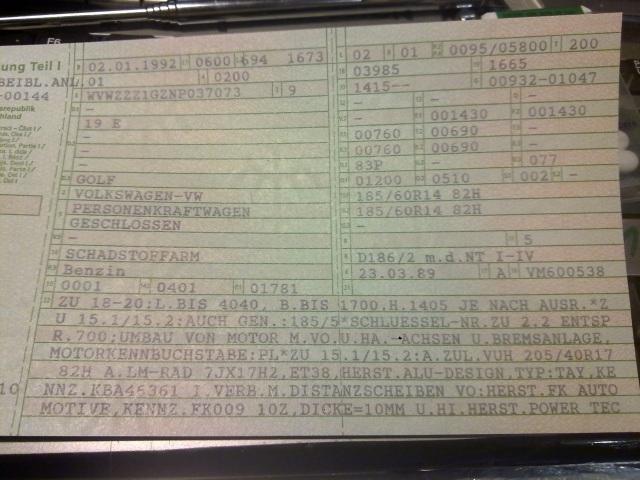 ung Teil I
02.01.1992 0600 694 1673 02 01 0095/05800 200
BEIBL.ANL 01 0200 03985 1665
-00144 WVWZZZ1GZNP037073 9 1415-- 00932-01047
republik
hland
- - -
19 E - 001430 001430
- 00760 00690 -
- 00760 00690 -
- 83P - 077
GOLF 01200 0510 002 -
VOLKSWAGEN-VW 185/60R14 82H
PERSONENKRAFTWAGEN 185/60R14 82H
GESCHLOSSEN -
- - 5
SCHADSTOFFARM D186/2 m.d.NT I-IV
Benzin 23.03.89 A VM600538
0001 0401 01781
ZU 18-20:L.BIS 4040, B.BIS 1700.H.1405 JE NACH AUSR.*Z
U 15.1/15.2:AUCH GEN.:185/5*SCHLUESSEL-NR.ZU 2.2 ENTSP
R.700:UMBAU VON MOTOR M.VO.U.HA.-ACHSEN U.BREMSANLAGE,
MOTORKENNBUCHSTABE:PL*ZU 15.1/15.2:A.ZUL.VUH 205/40R17
82H A.LM-RAD 7JX17H2,ET38,HERST.ALU-DESIGN,TYP:TAY,KE
10 NNZ.KBA45361 I.VERB.M.DISTANZSCHEIBEN VO:HERST.FK AUTO
MOTIVE,KENNZ.FK009 10Z,DICKE=10MM U.HI.HERST.POWER TEC